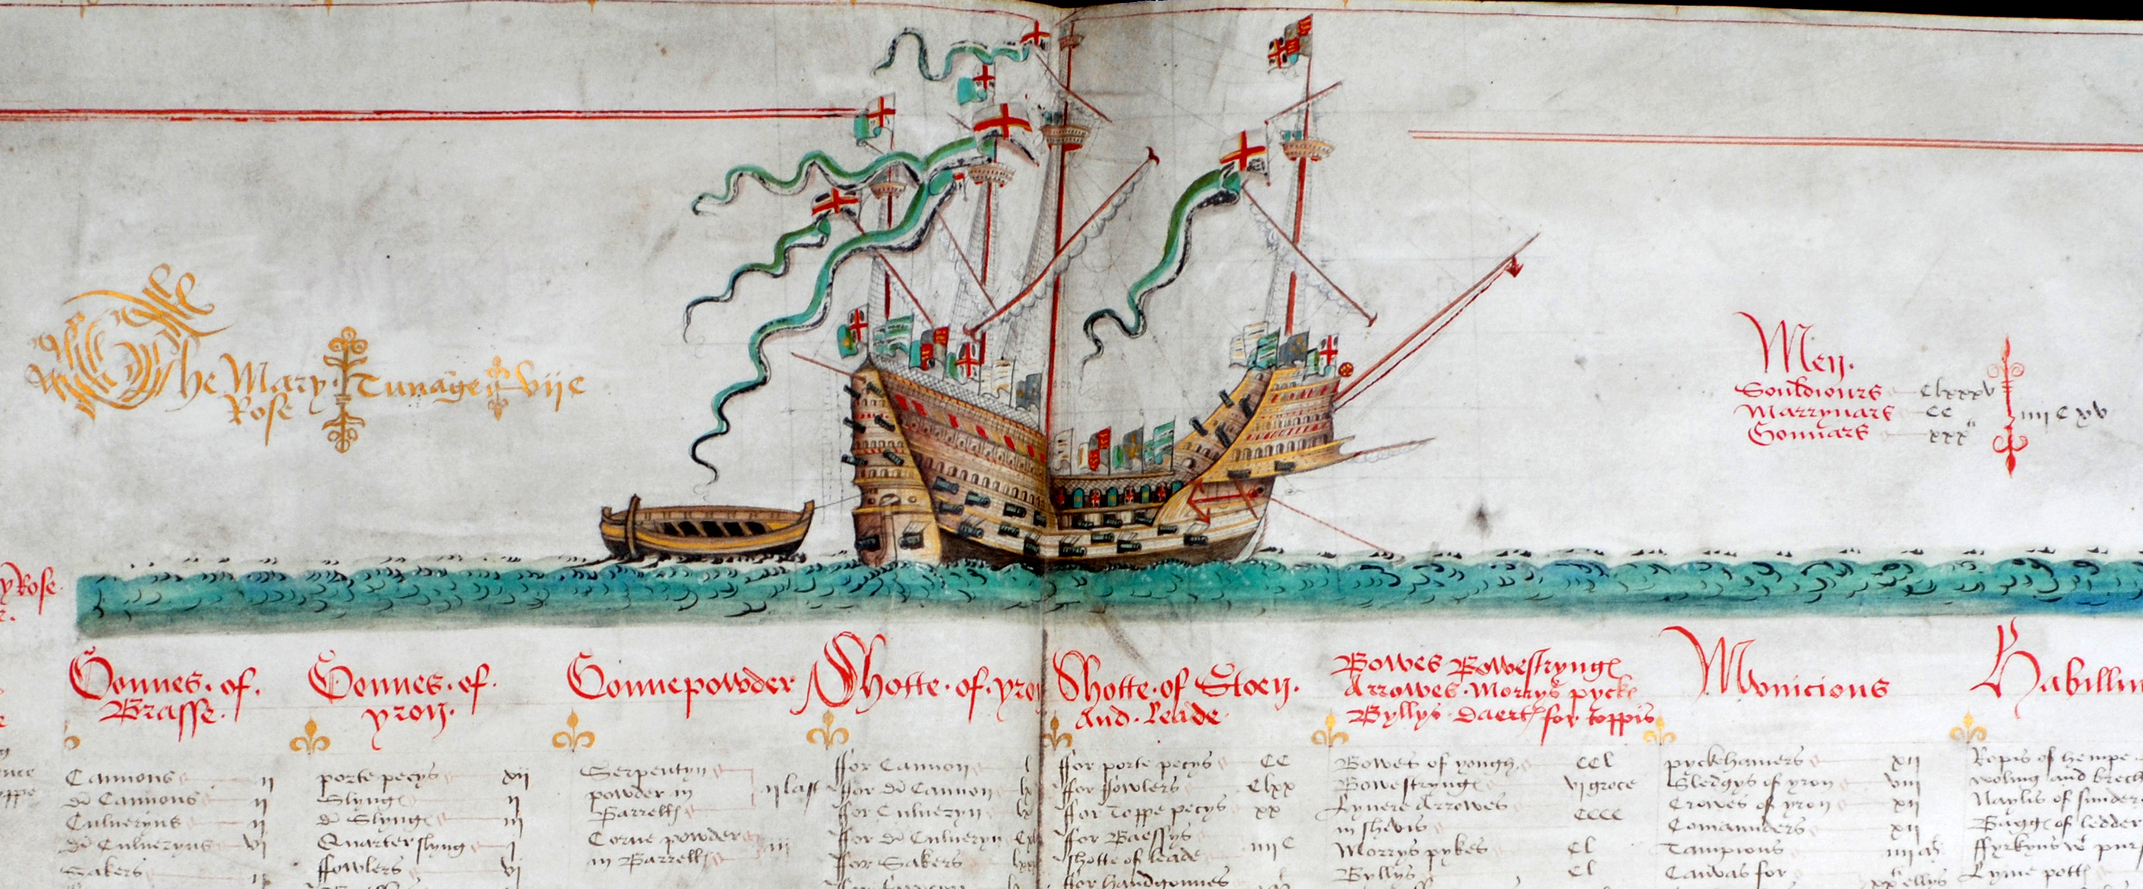 The Mary Tunage vijc
Rose
Men.
Souldiours clxxxv
Marrynars cc iiiicxv
Gonnars xxx
yRose
Gonnes. of.
Brasse.
Cannons ij
di Cannons ij
Culveryns ij
di Culveryns vj
Sakers ij
Gonnes. of.
yron.
porte pecys xij
Slyngs ij
di Slyngs iij
Quarter slyng j
ffowlers vj
Gonnepowder
Serpentyn
powder in
Barrells ij last
Corne powder
in Barrells iij
Shotte. of. yron
ffor Cannon l
ffor di Cannon lx
ffor Culveryn
ffor di Culveryn
ffor Sakers
Shotte. of Stoen.
and. leade
ffor porte pecys cc
ffor ffowlers clxx
ffor Toppe pecys xx
ffor Baessys
shotte of leade iiijc
ffor handgonnes
Bowes Bowestrynges
Arrowes. Morrys pyckes
Byllys. Daerts for toppis
Bowes of yough ccl
Bowestrynges vj groce
Lyvere Arrowes
in shevis cccc
Morrys pykes cl
Byllys cl
Monicions
pyckhamers xij
Sledgys of yron viij
Crowes of yron xij
Comaunders xij
Tampions
Canvas for
Habillm
Ropis of hempe
woling and brech
Naylis of sunder
Bagges of ledder
ffyrkyns
Lyme potts